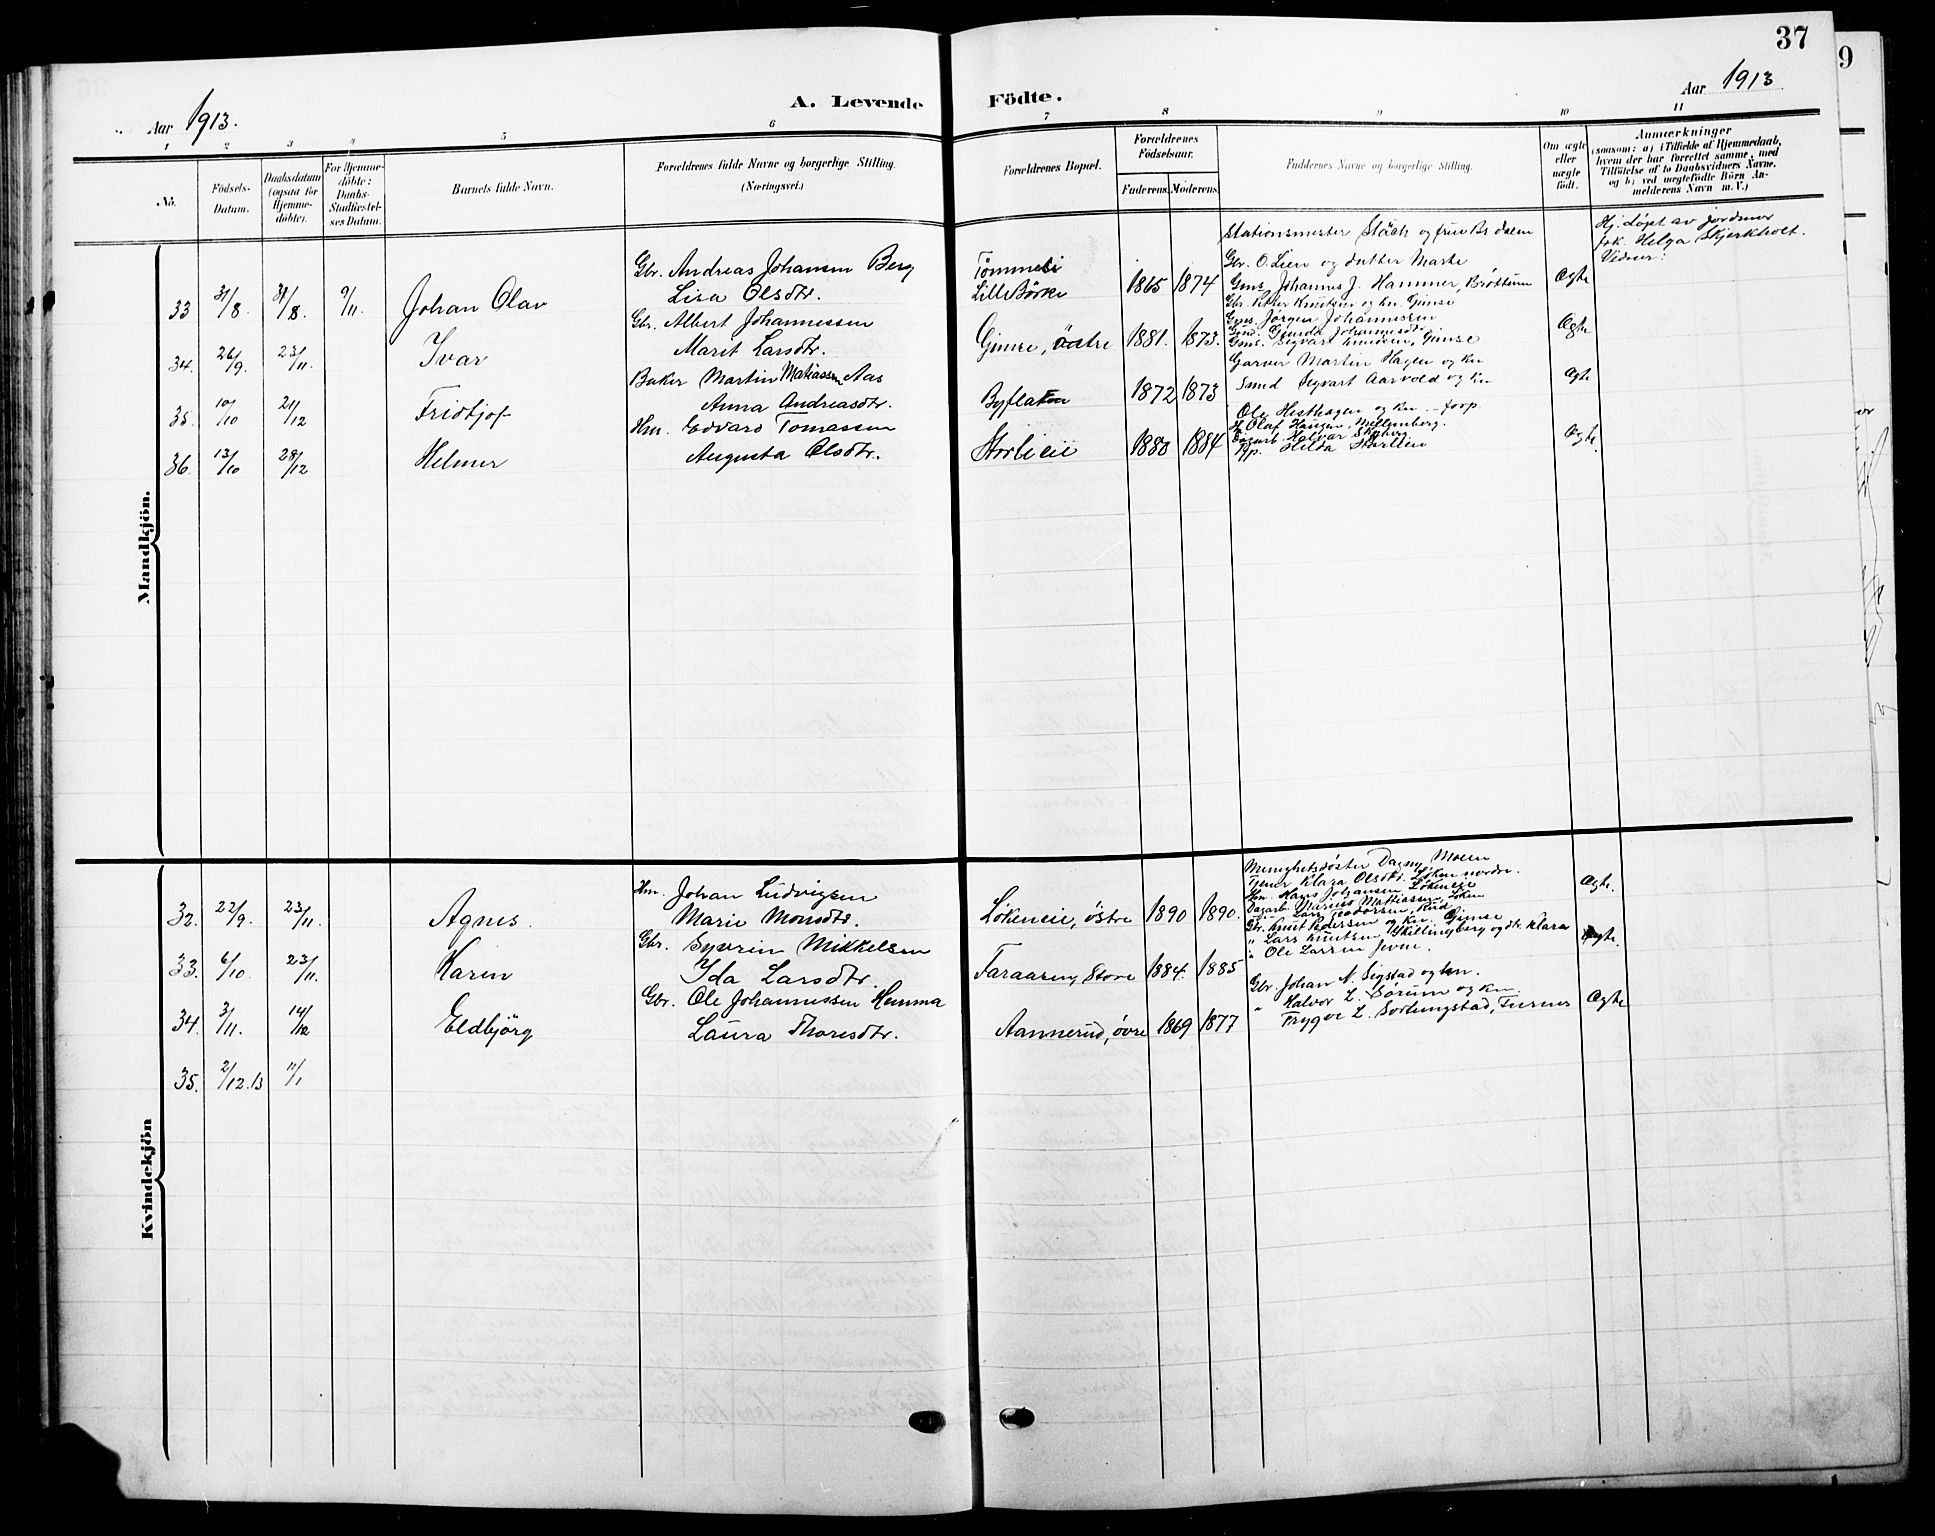 37
9
Aar 1913.
A. Levende Födte.
Aar 1913
1 2 3 4 5 6 7 8 9 10 11
No.
Födsels-Datum.
Daabsdatum (ogsaa for Hjemme-döbte).
For Hjemme-döbte: Daabs-Stadfæstel-ses Datum.
Barnets fulde Navn.
Forældrenes fulde Navne og borgerlige Stilling. (Næringsvei.)
Forældrenes Bopæl.
Forældrenes Födselsaar.
Faderens. Moderens.
Faddernes Navne og borgerlige Stilling.
Om ægte eller uægte födt.
Anmærkninger
(saasom: a) i Tilfælde af Hjemmedaab, hvem der har forrettet samme, med Tilföielse af to Daabsvidners Navne, og b) ved uægtefödte Börn An-melderens Navn m. V.)
Mandkjön.
33 31/8 31/8. 9/11. Johan Olav
Gbr. Andreas Johansen Berg
Lisa Olsdtr.
Tømmeli
Lille Börke
1865 1874
Stationsmester og frue
Gbr. O. Lien og datter Marte
Gms. Johannes J. Hammer, Bröttum
Ægte
Hj. døpt av jordmor
frk. Helga Skjerkholt.
Vidner:
34. 26/9. 23/11. Ivar
Gbr. Albert Johannessen
Marit Larsdtr.
Gimse, östre
1881. 1873.
Gbr. Petter Knutsen og kn. Gimse
Gms. Jørgen Johannessen
Gms. Gunda Johannesdtr
Gms. Segvart Knudsen, Gimse
Ægte
35. 10/10 21/12 Fridtjof
Baker Martin Matiassen Aas
Anna Andreasdtr.
Byflaten
1872 1873
Garver Martin Hagen og kn
Smed Segvart Aarvold og kn
Ægte
36. 13/10 28/12 Helmer
Hm. Edvard Tomassen
Augusta Olsdtr.
Storlieie
1880 1884
Ole Hesthagen og kn. - forp.
Olaf Haugen, Mellemberg.
Dagarb. Halvar Skyberg
Pp. Hilda Storlien
Ægte.
Kvindekjön
32. 22/9. 23/11. Agnes.
Hm. Johan Ludvigsen
Marie Monsdtr.
Løkeneie, östre
1890 1890.
Menighetssøster Dagny Moen
Tjener Klara Olsdtr. Løken nordre.
Hm. Hans Johansen Løkeneie
Dagarb. Marius Mattiassen, Løken
Lars Teodorsen, Rud
Ægte.
33. 6/10. 23/11. Karin
Gbr. Syverin Mikkelsen
Ida Larsdtr.
Taraaren, Store
1884. 1885
Gbr. Knut Pedersen og kn. Gimse
" Lars Knutsen Skillingberg og dtr. Klara
" Ole Larsen Jevne.
Ægte.
34. 3/11. 14/12 Eldbjörg
Gbr. Ole Johannessen Hemma
Laura Thoresdtr.
Aannerud, övre
1869 1877
Gbr. Johan N. Sigstad og kn.
" Halvor L. Sørum og kn.
" Trygve L. Sorlungstad, Furnes
Ægte
35. 2/12.13 11/1